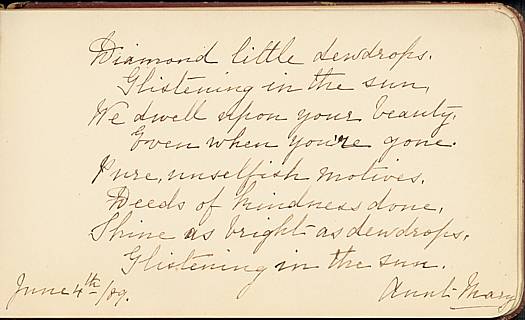 Diamond little dewdrops.
Glistening in the sun,
We dwell upon your beauty.
Even when you're gone.
Pure, unselfish motives.
Deeds of kindness done,
Shine as bright as dewdrops.
Glistening in the sun.
June 4th/89.
Aunt Mary